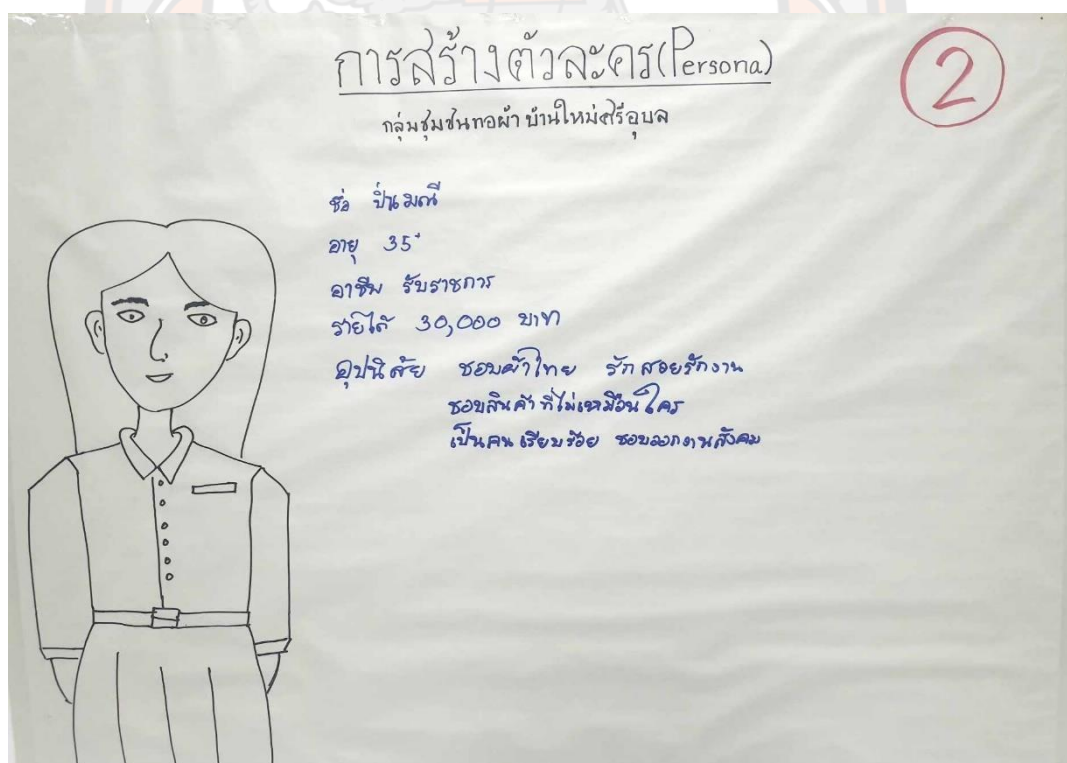 การสร้างตัวละคร(Persona)
2
กลุ่มชุมชนทอผ้า บ้านใหม่ศรีอุบล
ชื่อ ปิ่นมณี
อายุ 35+
อาชีพ รับราชการ
รายได้ 30,000 บาท
อุปนิสัย ชอบผ้าไทย รักสวยรักงาม
ชอบสินค้าที่ไม่เหมือนใคร
เป็นคนเรียบร้อย ชอบออกงานสังคม